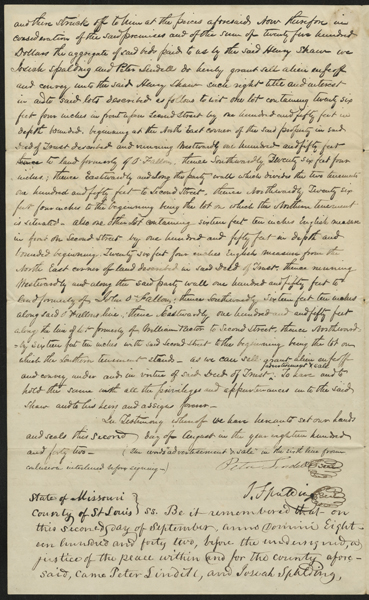 and then struck off to him at the prices aforesaid. Now therefore in
consideration of the said premises and of the sum of twenty five hundred
Dollars the aggregate of said bids paid to us by the said Henry Shaw we
Josiah Spalding and Peter Lindell do hereby grant sell alien enfeoff
and convey unto the said Henry Shaw such right title and interest
in and to said lots described as follows to wit one lot containing twenty six
feet four inches in front upon Second Street by one hundred and fifty feet in
depth bounded, beginning at the North East corner of the said property in said
Deed of Trust described and running Westwardly one hundred and fifty feet
thence to land formerly of O'Fallon, thence Southwardly Twenty six feet four
inches; thence Eastwardly and along the party wall which divides the two tenements
one hundred and fifty feet to Second Street, thence Northwardly Twenty six
feet four inches to the beginning being the lot on which the Northern tenement
is situated - also one other lot containing sixteen feet ten inches English measure
in front on Second Street by one hundred and fifty feet in depth and
bounded beginning Twenty six feet four inches English measure from the
North East corner of land described in said Deed of Trust, thence running
Westwardly and along the said party wall one hundred and fifty feet to
land formerly of John O'Fallon, thence Southwardly Sixteen feet ten inches
along said O'Fallons line; thence Eastwardly one hundred and fifty feet
along the line of lot formerly of William to Second Street, thence Northward
ly Sixteen feet ten inches with said Second Street to the beginning being the lot on
which the Southern tenement stands - as we can sell grant alien enfeoff
and convey under and in virtue of said Deed of Trust - To have and to
hold the same with all the privileges and appurtenances unto the said
Shaw and to his heirs and assigns forever -
In Testimony whereof we have hereunto set our hands
and seals this Second day of August in the year eighteen hundred
and forty two -
Peter Lindell Seal
J. Spalding Seal
State of Missouri
County of St Louis ss. Be it remembered that on
this second day of September anno Domini Eight-
een hundred and forty two, before the undersigned, a
justice of the peace within and for the county afore-
said, came Peter Lindell, and Josiah Spalding,